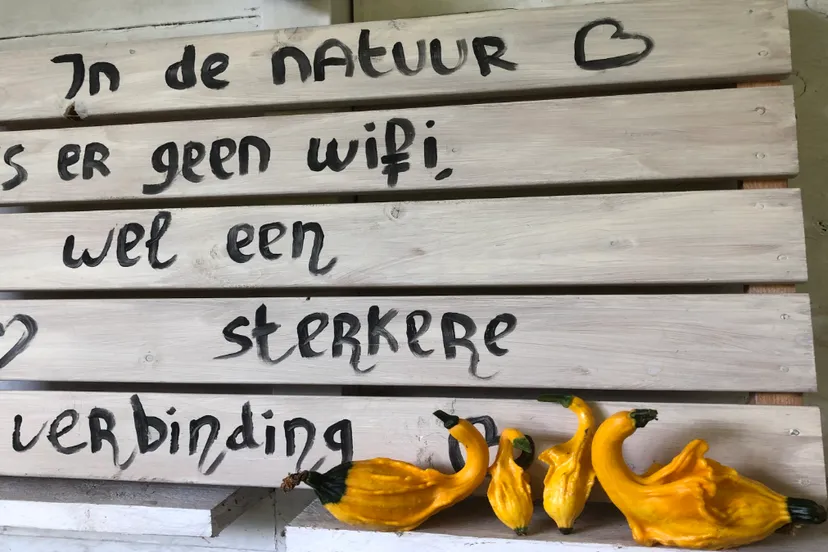 In de natuur
s er geen wifi.
wel een
sterkere
verbinding